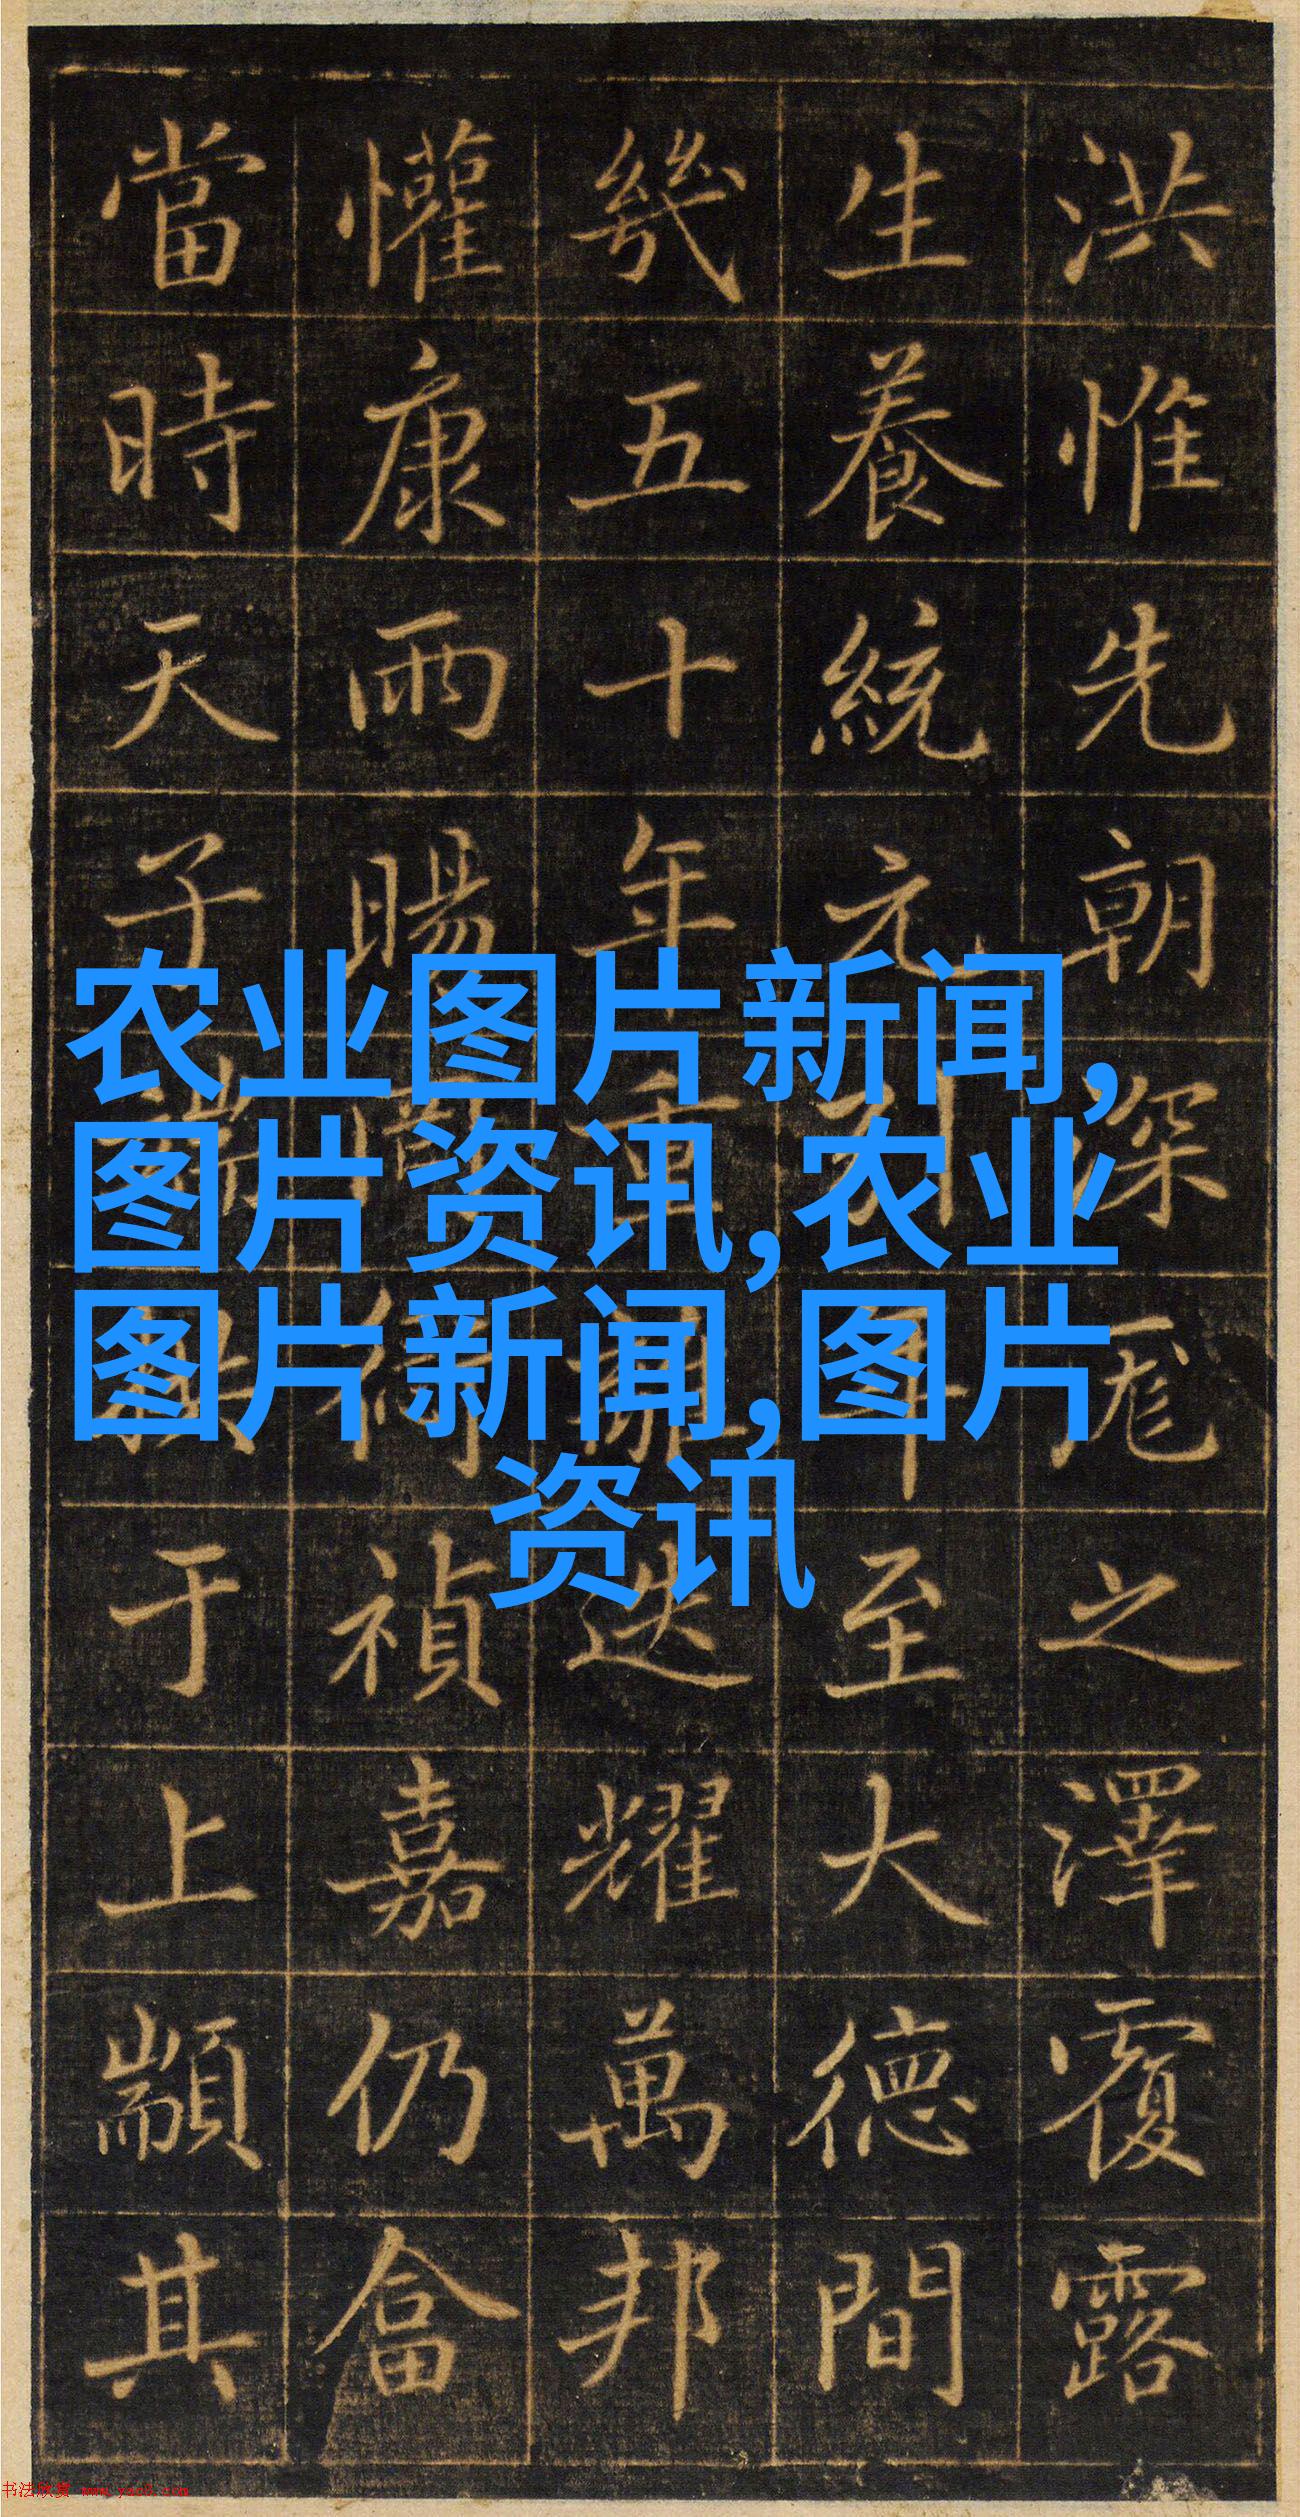 洪惟先朝深厖之澤覆露
生養統元至大德間
幾五十年重迭耀萬邦
懽康雨暘禎嘉仍畣
當時天子端拱于上顒其
农业图片新闻,
图片资讯,农业
图片新闻,图片
资讯
书法欣赏 www.yac8.com